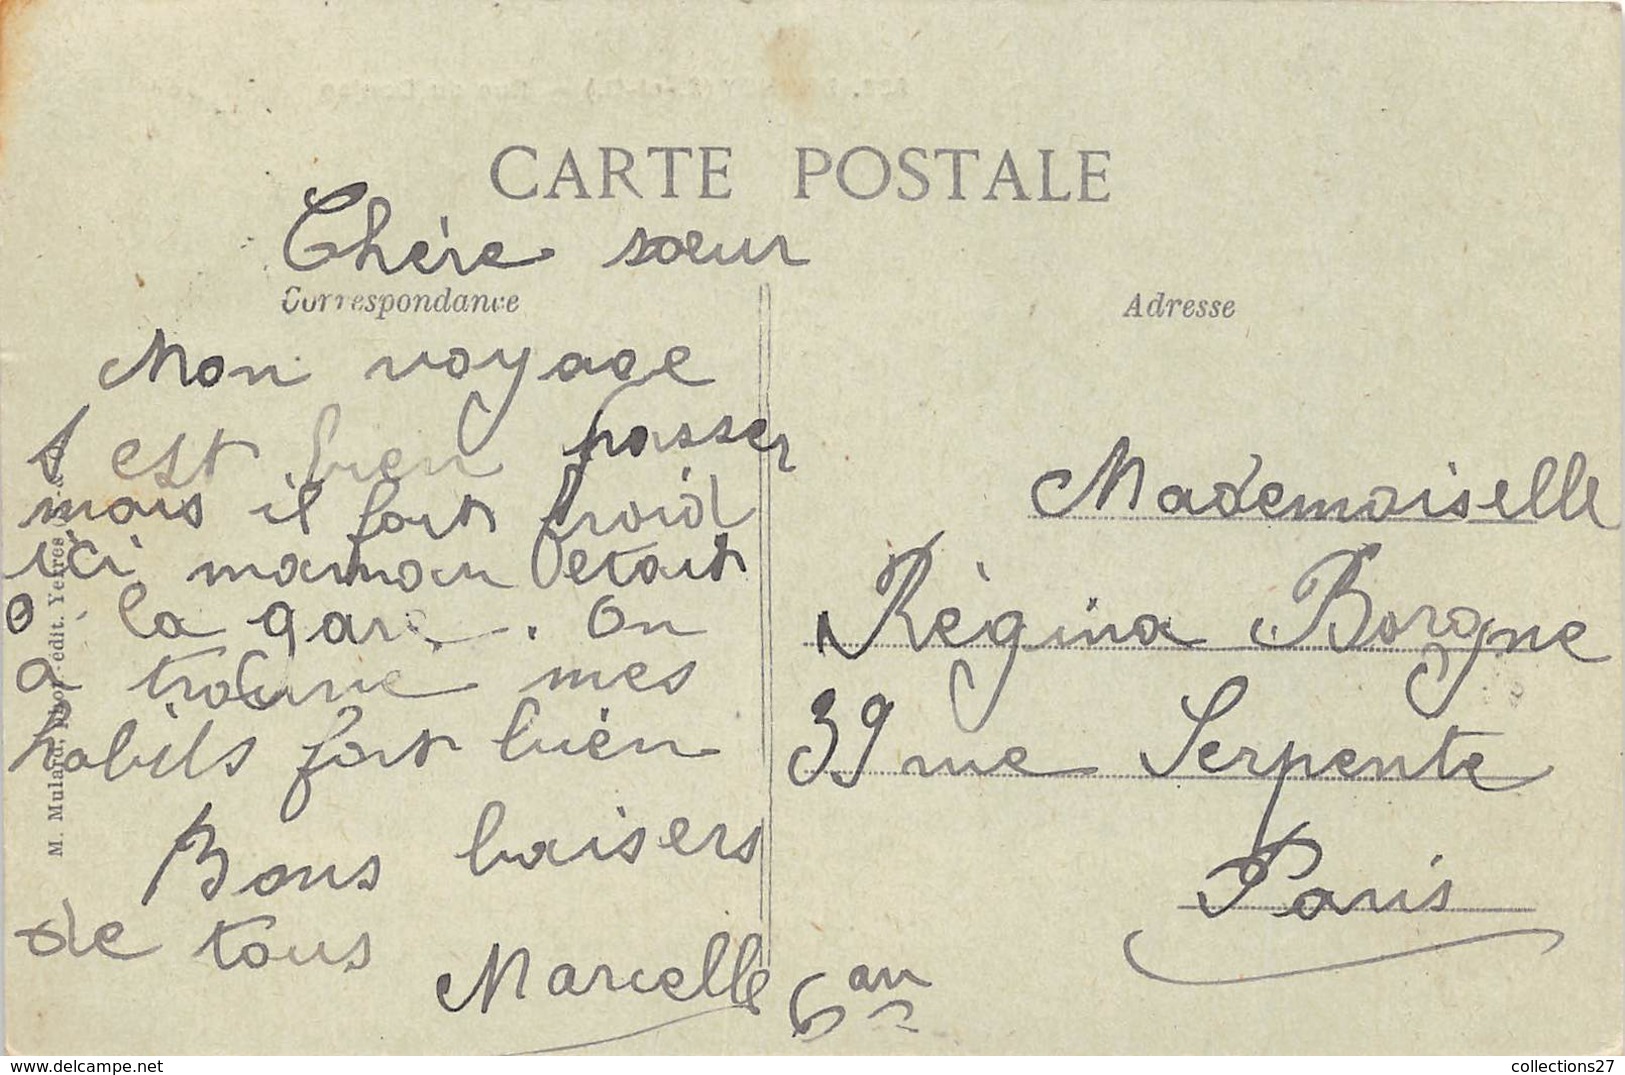 CARTE POSTALE
Chère sœur
Correspondance
Mon voyage
s est bien passer
mais il fait froid
ici maman etait
a la gare. On
a trouvé mes
habils fort bien
Bons baisers
de tous
Marcelle
M. Mulard, phot.-édit. Yerres
Adresse
Mademoiselle
Régina Borgne
39 rue Serpente
Paris
6
www.delcampe.net
collections27